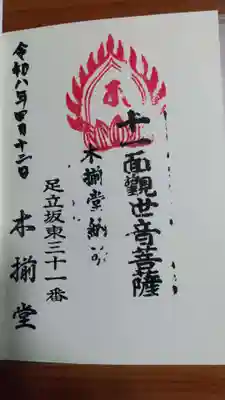 十一面觀世音菩薩
木揃堂納め
足立坂東三十一番
木揃堂
令和八年四月十二日